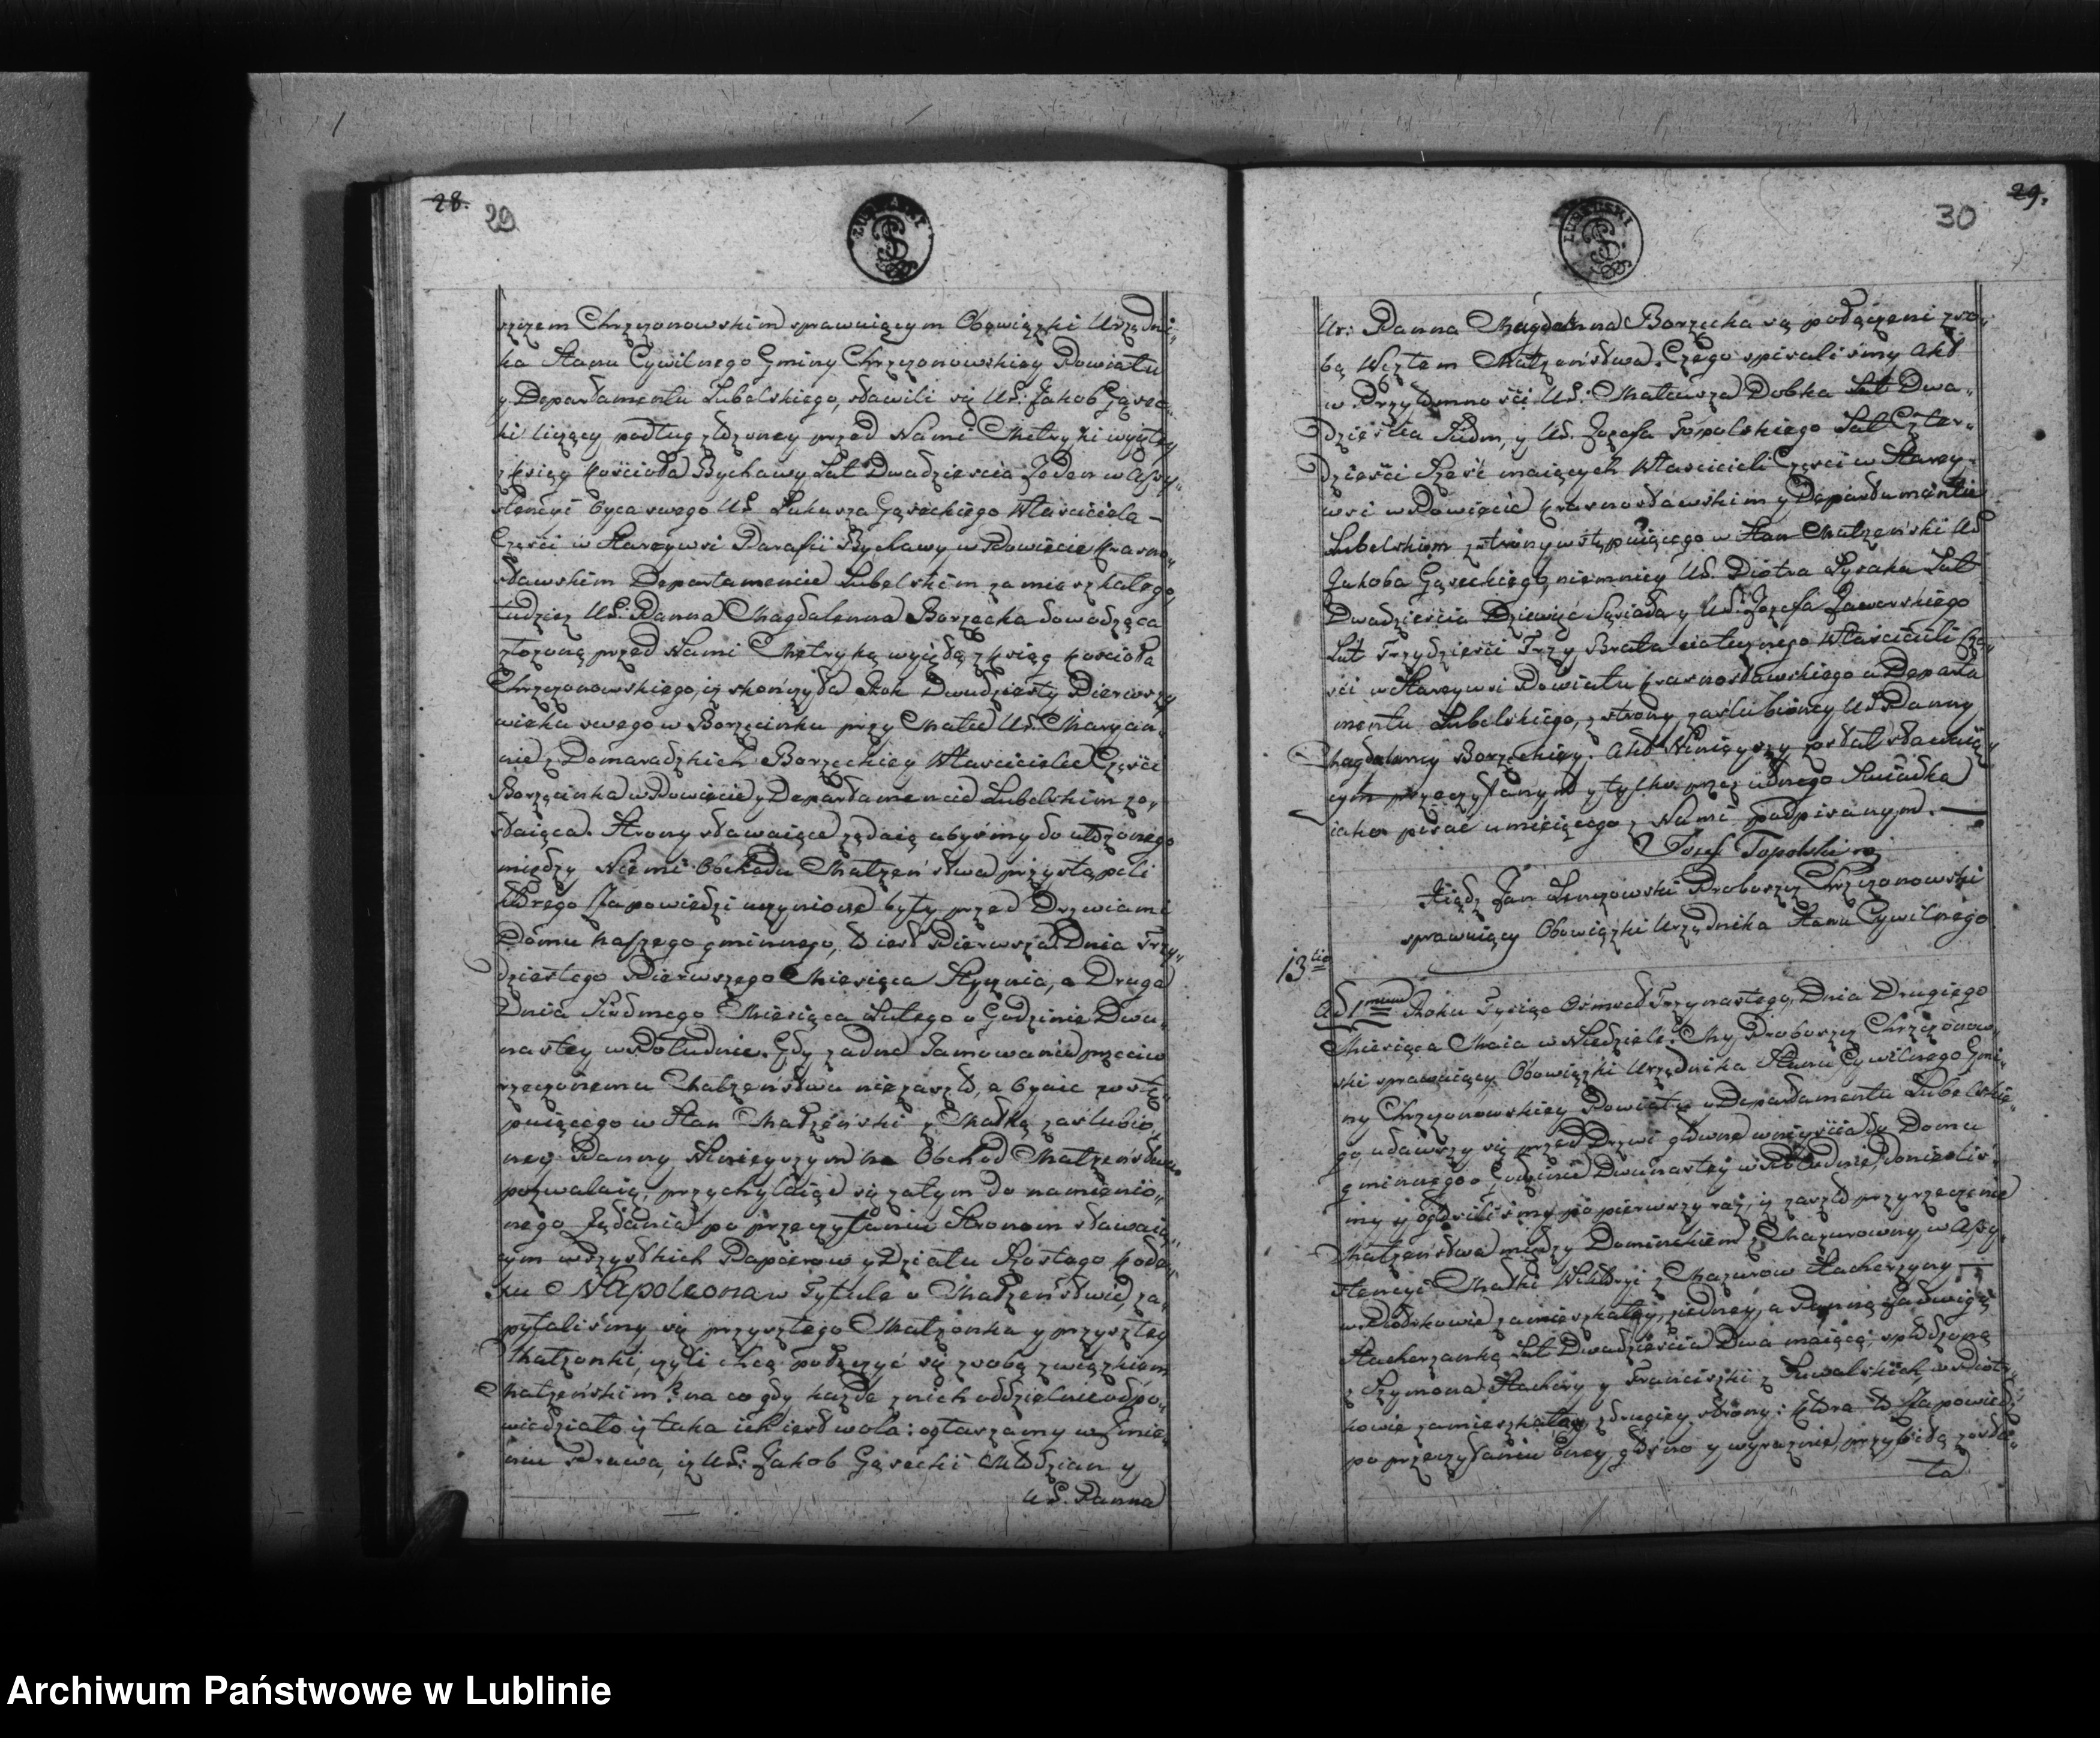 28. 29
LUBELSKI
szczem Chrzczonowskim sprawuiącym Obowiązki Urzędni„
ka Stanu Cywilnego Gminy Chrzczonowskiey Powiatu
y Departamentu Lubelskiego, stawili się Ur: Jakob Gąsec„
ki liczący podług złożoney przed Nami Metryki wyiętey
z ksiąg kościoła Bychawy Lat Dwadzieścia Jeden w Assy„
stencyi Oyca swego Ur. Łukasza Gąseckiego Właściciela –
Części w Stareywsi Parafii Bychawy w Powiecie Krasno„
stawskim Departamencie Lubelskim zamieszkałego,
tudzież Ur: Panna Magdalenna Borzęcka dowodząca
złożoną przed Nami Metryką wyiętą z ksiąg kościoła
Chrzczonowskiego, iż skończyła Rok Dwudziesty Pierwszy
wieku swego w Borzęcinku przy Matce Ur. Maryan„
nie z Domaradzkich Borzęckiey Właścicielce Części
Borzęcinka w Powiecie y Departamencie Lubelskim zo„
staiąca. Strony stawaiące żądaią abyśmy do ułożonego
między Niemi Obchodu Małżeństwa przystąpili
którego Zapowiedzi uczynione były przed Drzwiami
Domu naszego gminnego, to iest Pierwsza Dnia Trzy„
dziestego Pierwszego Miesiąca Stycznia, a Druga
Dnia Siódmego Miesiąca Lutego o Godzinie Dwu„
nastey w Południe. Gdy żadne Tamowanie przeciw
rzeczonemu Małżeństwu niezaszło, a Oyciec wstę„
puiącego w Stan Małżeński y Matka zaślubio„
ney Panny Ninieyszym na Obchod Małżeństwa
pozwalaią, przychylaiąc się zatym do namienio„
nego Żądania po przeczytaniu Stronom stawaią„
cym wszystkich Papierow y Działu Szostego Kode„
xu NApoleona w Tytule o Małżeństwie, za„
pytaliśmy się przyszłego Małżonka y przyszłey
Małżonki, czyli chcą połączyć się z sobą związkiem
Małżeńskim? na co gdy każde z nich oddzielnie odpo„
wiedziało iż taka ich iest wola: ogłaszamy w Imie„
niu Prawa, iż Ur: Jakob Gąsecki Młodzian y
Ur. Panna
30 29.
LUBELSKI
Ur: Panna Magdalenna Borzęcka są połączeni z so„
bą Węzłem Małżeństwa. Czego spisaliśmy Akt
w Przytomności Ur: Mateusza Dobka Lat Dwa„
dzieścia Siedm, y Ur. Jozefa Topolskiego Lat Czter„
dzieści Sześć maiących Właścicieli Części w Starey„
wsi w Powiecie Krasnostawskim y Departamencie
Lubelskim z strony wstępuiącego w Stan Małżeński Ur
Jakoba Gąseckiego, niemniey Ur. Piotra Łysaka Lat
Dwadzieścia Dziewięć Sąsiada y Ur. Jozefa Jaworskiego
Lat Trzydzieści Trzy Brata ciotecznego Właścicieli Czę„
ści w Stareywsi Powiatu Krasnostawskiego a Departa
mentu Lubelskiego, z strony zaślubioney Ur Panny
Magdalenny Borzęckiey. Akt Ninieyszy został stawaią„
cym przeczytanym y tylko przez iednego Swiadka
iako pisać umieiącego z Nami podpisanym. —
Josef Topolski
Xiądz Jan Lenczowski Proboszcz Chrzczonowski
sprawuiący Obowiązki Urzędnika Stanu Cywilnego
13tio
Ad 1mum Roku Tysiąc Osmset Trzynastego, Dnia Drugiego
Miesiąca Maia w Niedzielę. My Proboszcz Chrzczonow„
ski sprawuiący Obowiązki Urzędnika Stanu Cywilnego Gmi„
ny Chrzczonowskiey Powiatu y Departamentu Lubelskie„
go udawszy się przed Drzwi główne wniyścia do Domu
gminnego o Godzinie Dwunastey w Południe, donieśliś„
my y ogłosiliśmy po pierwszy raz, iż zaszło przyrzeczenie
Małżeństwa między Dominikiem w Assy„
stencyi Matki z Mazurow Stacherzyny —
w Piotrkowie zamieszkałey, z iedney, a Panną Jadwigą
Stacherzanką Lat Dwadzieścia Dwa maiącą, spłodzoną
z Szymona Stachiry y Franciszki z Suwalskich w Piotr„
kowie zamieszkałą z drugiey strony: która to Zapowiedź
po przeczytaniu oney głośno y wyraźnie, przybitą zosta„
ła
Archiwum Państwowe w Lublinie